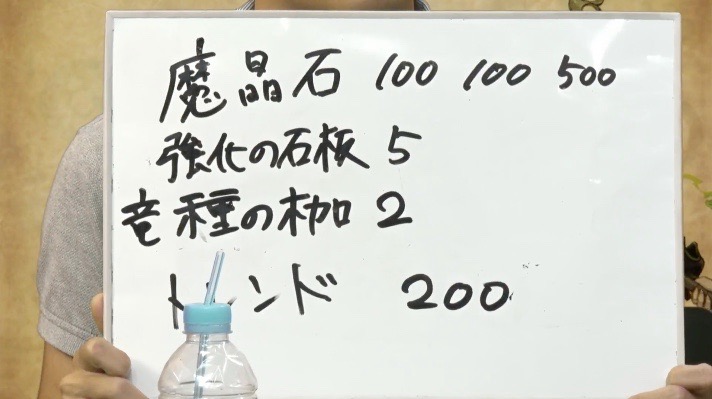 魔晶石 100 100 500
強化の石板 5
竜種の枷 2
200